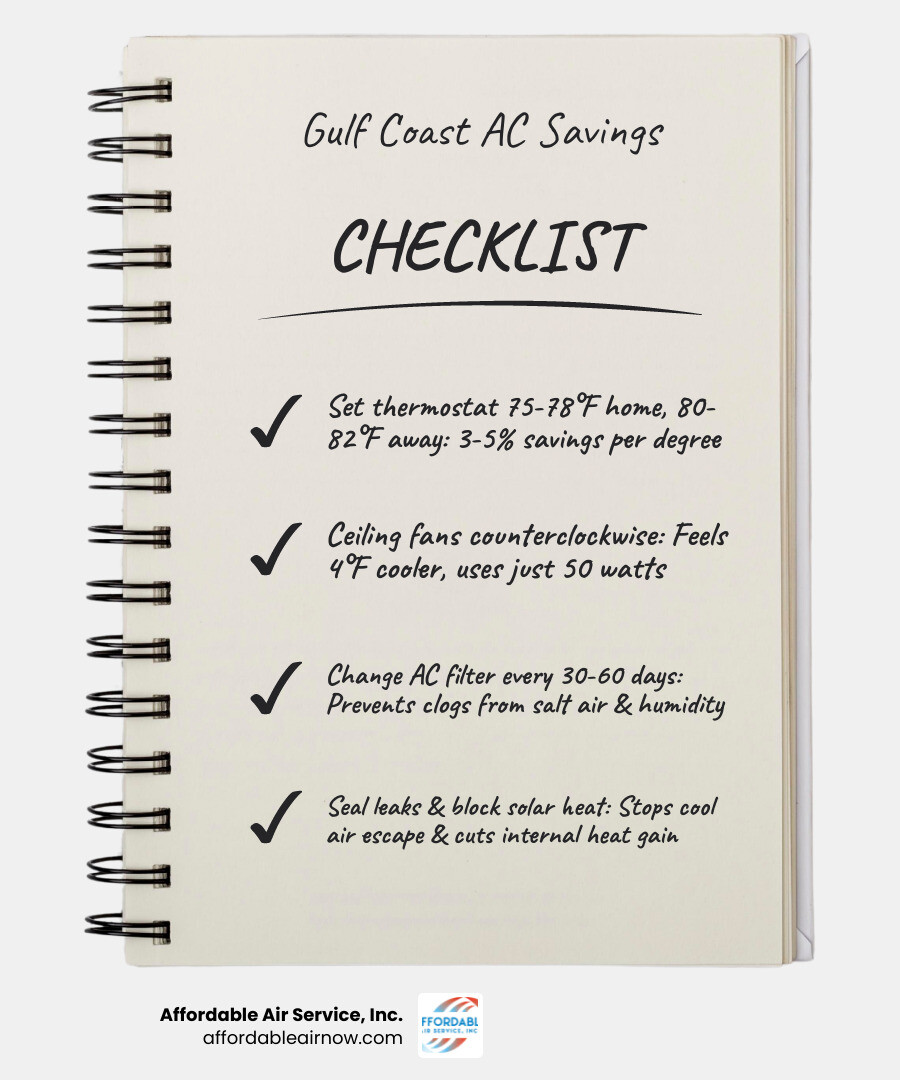 Gulf Coast AC Savings
CHECKLIST
Set thermostat 75-78°F home, 80-
82°F away: 3-5% savings per degree
Ceiling fans counterclockwise: Feels
4°F cooler, uses just 50 watts
Change AC filter every 30-60 days:
Prevents clogs from salt air & humidity
Seal leaks & block solar heat: Stops cool
air escape & cuts internal heat gain
Affordable Air Service, Inc.
affordableairnow.com
FFORDABL
IR SERVICE, INC